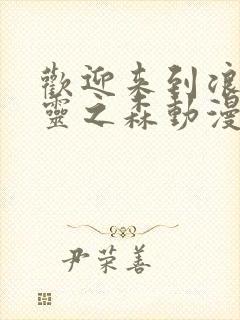 歡迎来到浪
靈之森動漫
尹荣善